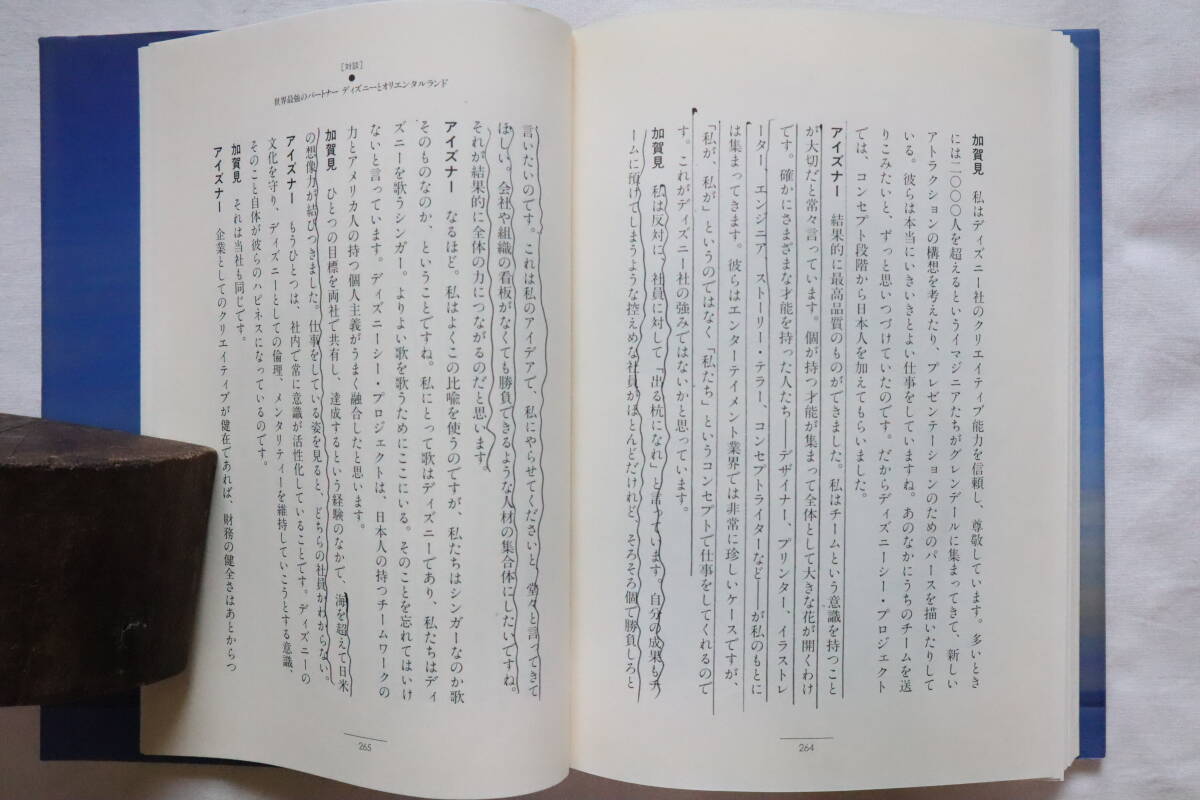 加賀見　私はディズニー社のクリエイティブ能力を信頼し、尊敬しています。多いとき
には二〇〇〇人を超えるというイマジニアたちがグレンデールに集まってきて、新しい
アトラクションの構想を考えたり、プレゼンテーションのためのパースを描いたりして
いる。彼らは本当にいきいきとよい仕事をしていますね。あのなかにうちのチームを送
りこみたいと、ずっと思いつづけていたのです。だからディズニーシー・プロジェクト
では、コンセプト段階から日本人を加えてもらいました。
アイズナー　結果的に最高品質のものができました。私はチームという意識を持つこと
が大切だと常々言っています。個が持つ才能が集まって全体として大きな花が開くわけ
です。確かにさまざまな才能を持った人たち——デザイナー、プリンター、イラストレ
ーター、エンジニア、ストーリー・テラー、コンセプトライターなど——が私のもとに
は集まってきます。彼らはエンターテイメント業界では非常に珍しいケースですが、
「私が、私が」というのではなく「私たち」というコンセプトで仕事をしてくれるので
す。これがディズニー社の強みではないかと思っています。
加賀見　私は反対に、社員に対して「出る杭になれ」と言っています。自分の成果もチ
ームに預けてしまうような控えめな社員がほとんどだけれど、そろそろ個で勝負しろと
264
［対談］
世界最強のパートナー ディズニーとオリエンタルランド
言いたいのです。これは私のアイデアで、私にやらせてくださいと、堂々と言ってきて
ほしい。会社や組織の看板がなくても勝負できるような人材の集合体にしたいですね。
それが結果的に全体の力につながるのだと思います。
アイズナー　なるほど。私はよくこの比喩を使うのですが、私たちはシンガーなのか歌
そのものなのか、ということですね。私にとって歌はディズニーであり、私たちはディ
ズニーを歌うシンガー。よりよい歌を歌うためにここにいる。そのことを忘れてはいけ
ないと言っています。ディズニーシー・プロジェクトは、日本人の持つチームワークの
力とアメリカ人の持つ個人主義がうまく融合したと思います。
加賀見　ひとつの目標を両社で共有し、達成するという経験のなかで、海を超えて日米
の想像力が結びつきました。仕事をしている姿を見ると、どちらの社員かわからない。
アイズナー　もうひとつは、社内で常に意識が活性化していることです。ディズニーの
文化を守り、ディズニーとしての倫理、メンタリティーを維持していこうとする意識、
そのこと自体が彼らのハピネスになっているのです。
加賀見　それは当社も同じです。
アイズナー　企業としてのクリエイティブが健在であれば、財務の健全さはあとからつ
265